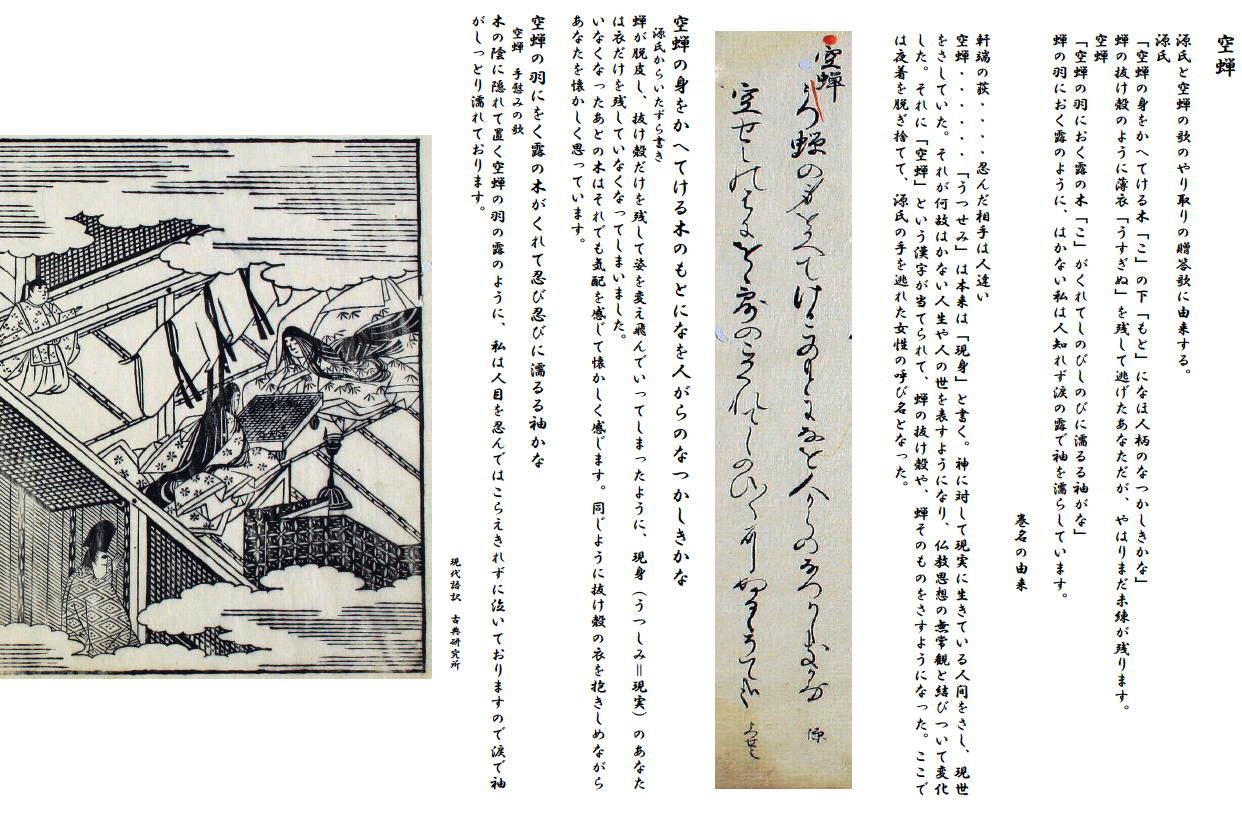 空蝉
源氏と空蝉の歌のやり取りの贈答歌に由来する。
源氏
「空蝉の身をかへてける木「こ」の下「もと」になほ人柄のなつかしきかな」
蝉の抜け殻のように薄衣「うすぎぬ」を残して逃げたあなただが、やはりまだ未練が残ります。
空蝉
「空蝉の羽におく露の木「こ」がくれてしのびしのびに濡るる袖がな」
蝉の羽におく露のように、はかない私は人知れず涙の露で袖を濡らしています。
巻名の由来
軒端の荻・・・・忍んだ相手は人違い
空蝉・・・・・・「うつせみ」は本来は「現身」と書く。神に対して現実に生きている人間をさし、現世
をさしていた。それが何故はかない人生や人の世を表すようになり、仏教思想の無常観と結びついて変化
した。それに「空蝉」という漢字が当てられて、蝉の抜け殻や、蝉そのものをさすようになった。ここで
は夜着を脱ぎ捨てて、源氏の手を逃れた女性の呼び名となった。
空蝉
空蝉の身をかへてける木のもとになを人がらのなつかしきかな
源氏からいたずら書き
蝉が脱皮し、抜け殻だけを残して姿を変え飛んでいってしまったように、現身（うつしみ＝現実）のあなた
は衣だけを残していなくなってしまいました。
いなくなったあとの木はそれでも気配を感じて懐かしく感じます。同じように抜け殻の衣を抱きしめながら
あなたを懐かしく思っています。
空蝉の羽にをく露の木がくれて忍び忍びに濡るる袖かな
空蝉 手慰みの歌
木の陰に隠れて置く空蝉の羽の露のように、私は人目を忍んではこらえきれずに泣いておりますので涙で袖
がしっとり濡れております。
現代語訳 古典研究所